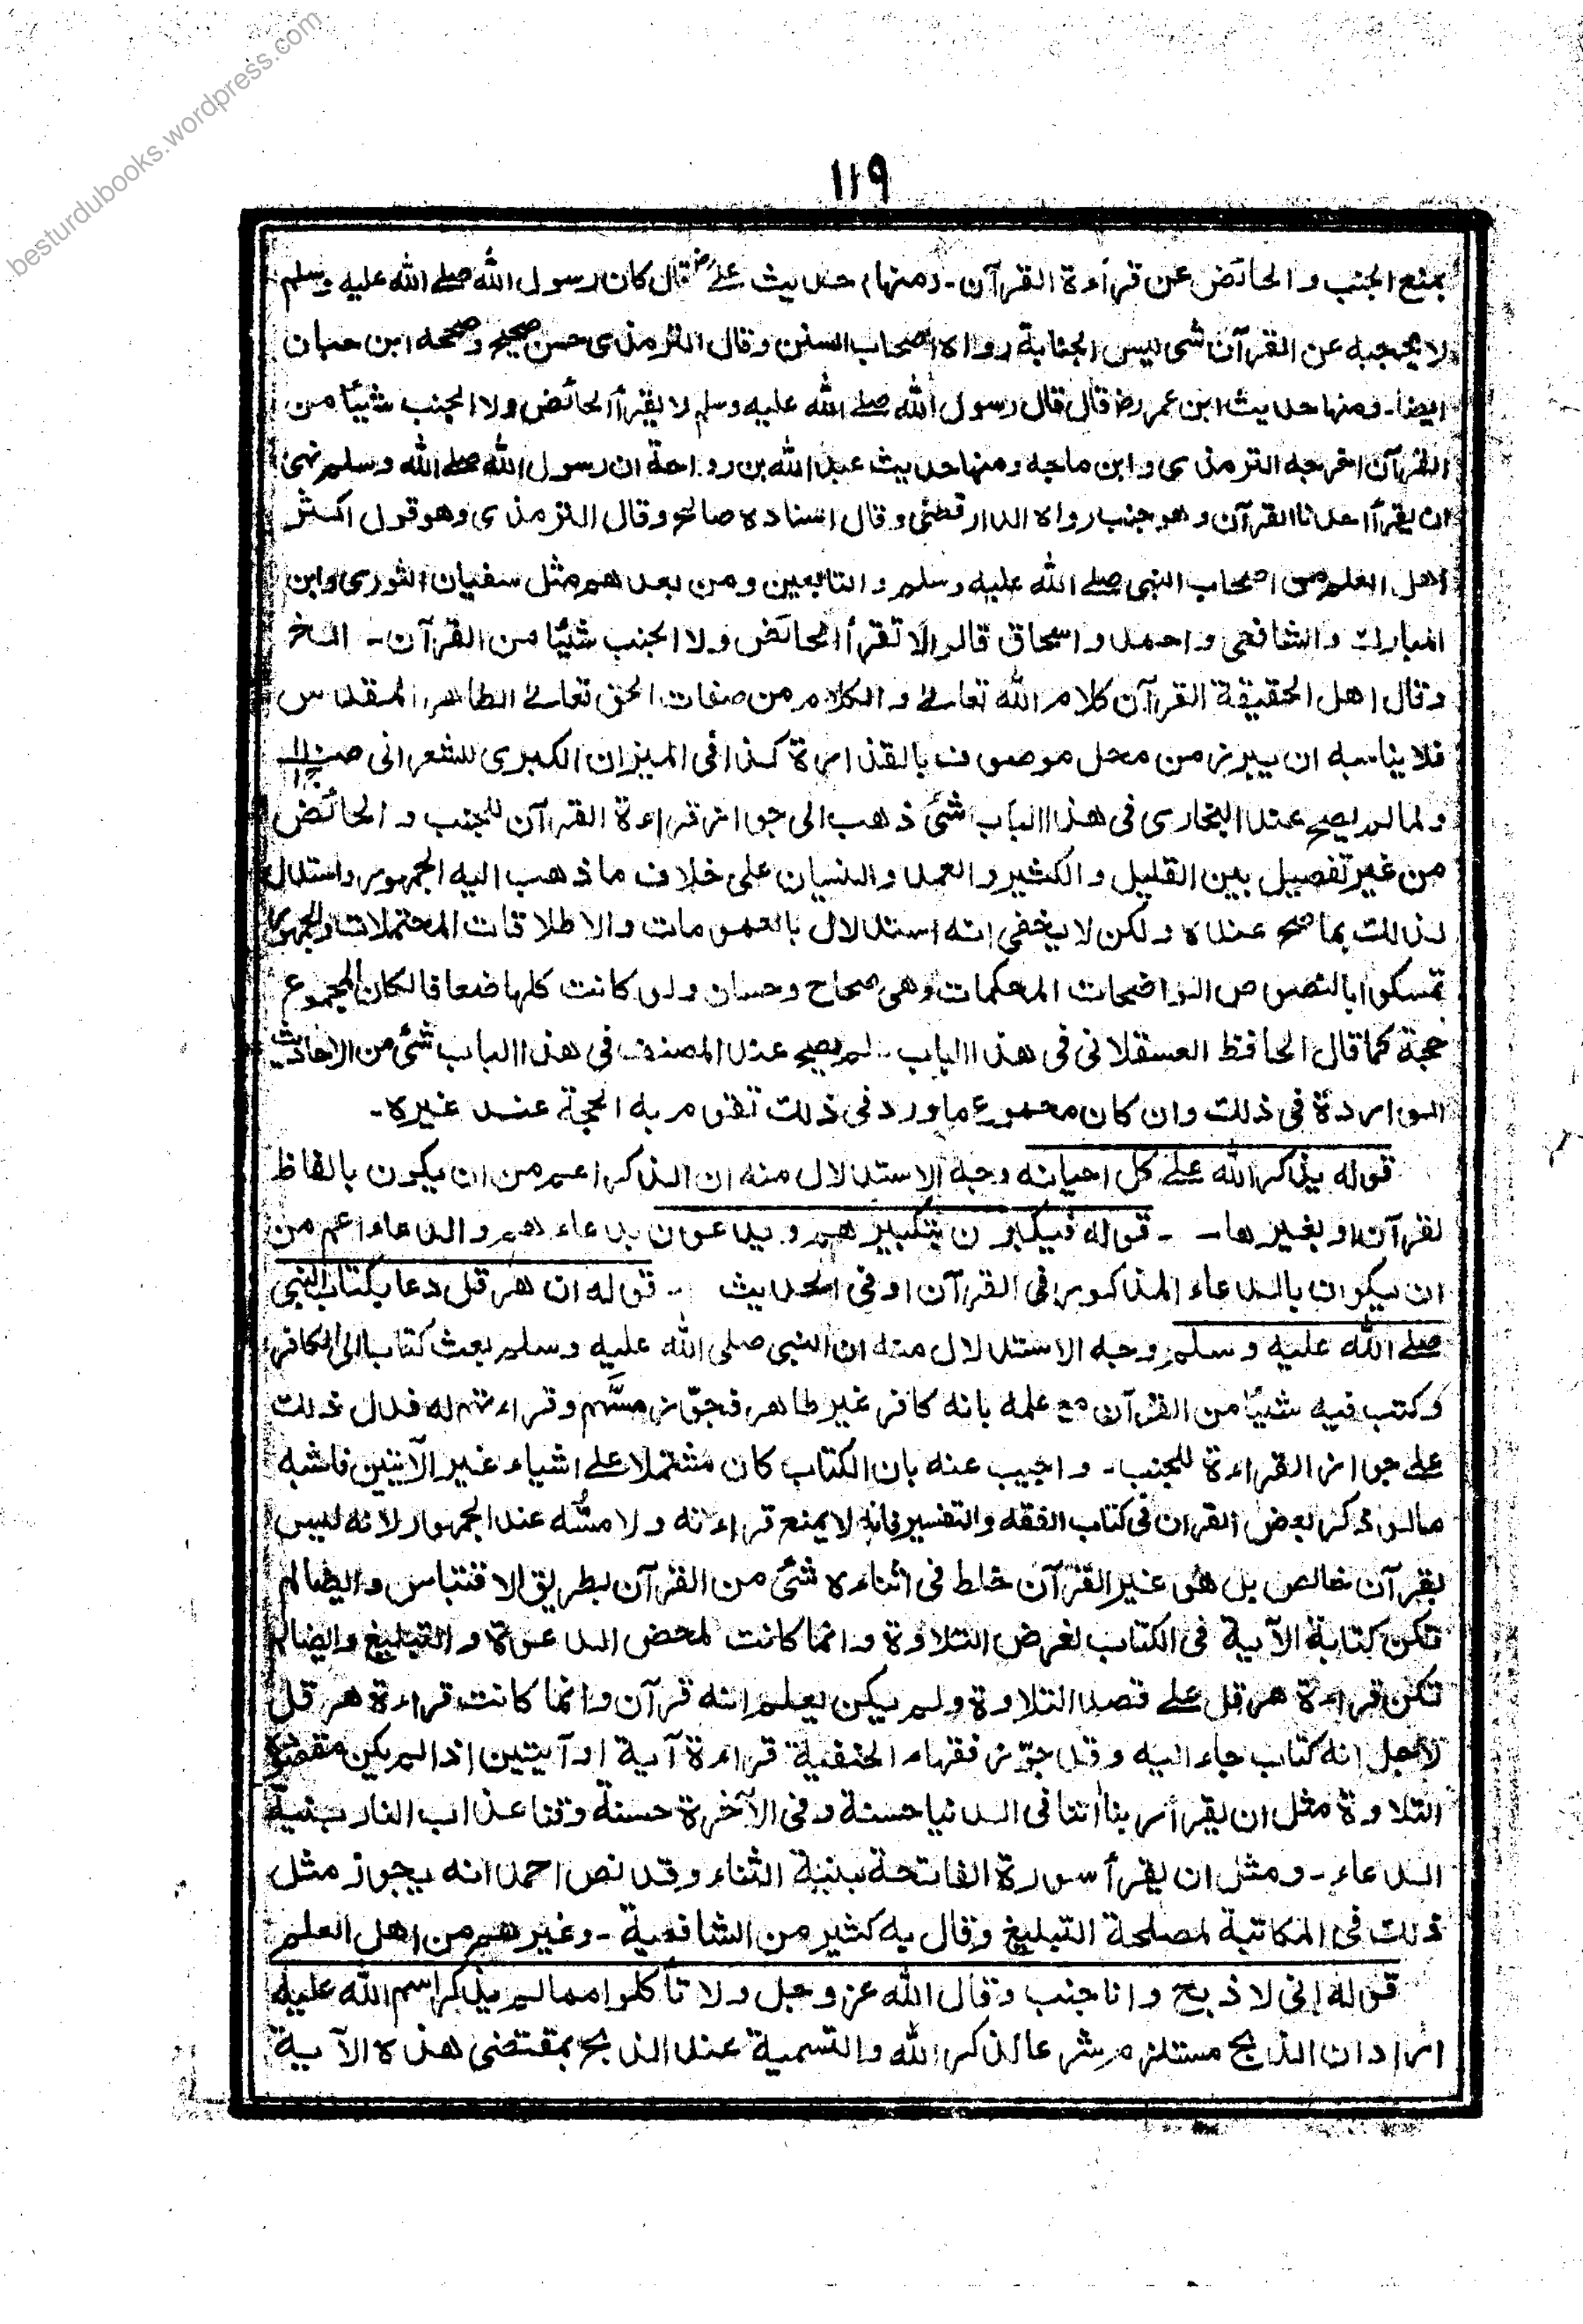 besturdubooks.wordpress.com
١١٩
بمنع الجنب والحائض عن قراءة القرآن - (ومنها) حديث علي رض قال كان رسول الله صلے الله عليه وسلم
لا يحجبه عن القرآن شى ليس الجنابة رواه اصحاب السنن وقال الترمذى حسن صحيح وصححه ابن حبان
ايضا - ومنها حديث ابن عمر رض قال قال رسول الله صلے الله عليه وسلم لا يقرأ الحائض ولا الجنب شيئا من
القرآن اخرجه الترمذى وابن ماجه ومنها حديث عبد الله بن رواحة ان رسول الله صلے الله وسلم نهى
ان يقرأ احدنا القرآن وهو جنب رواه الدارقطنى وقال اسناده صالح وقال الترمذى وهو قول اكثر
اهل العلم من اصحاب النبى صلے الله عليه وسلم والتابعين ومن بعدهم مثل سفيان الثورى وابن
المبارك والشافعى واحمد واسحاق قالوا لا تقرأ الحائض ولا الجنب شيئا من القرآن - الخ
وقال اهل الحقيقة القرآن كلام الله تعالے والكلام من صفات الحق تعالے الطاهر المقدس
فلا يناسبه ان يبرز من محل موصوف بالقذارة كذا فى الميزان الكبرى للشعرانى
ولما لم يصح عند البخارى فى هذا الباب شئ ذهب الى جواز قراءة القرآن للجنب والحائض
من غير تفصيل بين القليل والكثير والعمد والنسيان على خلاف ما ذهب اليه الجمهور واستدل
لذلك بما صح عنده ولكن لا يخفى انه استدلال بالعمومات والاطلاقات المحتملات والجمهور
تمسكوا بالنصوص الواضحات المحكمات وهى صحاح وحسان ولو كانت كلها ضعافا لكان المجموع
حجة كما قال الحافظ العسقلانى فى هذا الباب - لم يصح عند المصنف فى هذا الباب شئ من الاحاديث
الواردة فى ذلك وان كان مجموع ما ورد فى ذلك تقوم به الحجة عند غيره -
قوله يذكر الله علے كل احيانه وجه الاستدلال منه ان الذكر اعم من ان يكون بالفاظ
لقرآن او بغيرها - - قوله فيكبرن بتكبيرهم ويدعون بدعاءهم والدعاء اعم من
ان يكون بالدعاء المذكور فى القرآن او فى الحديث - قوله ان هرقل دعا بكتاب النبى
صلے الله عليه وسلم وجه الاستدلال منه ان النبى صلى الله عليه وسلم بعث كتابا الى الكافر
وكتب فيه شيئا من القرآن مع علمه بانه كافر غير طاهر فجوّز مسَّهم وقراءتهم له فدل ذلك
علے جواز القراءة للجنب - واجيب عنه بان الكتاب كان مشتملا علے اشياء غير الآيتين فاشبه
مالو ذكر بعض القران فى كتاب الفقه والتفسير فانه لا يمنع قراءته ولا مسّه عند الجمهور لانه ليس
بقرآن خالص بل هو غير القرآن خلط فى اثناءه شئ من القرآن بطريق الاقتباس وايضا لم
تكن كتابة الآية فى الكتاب لغرض التلاوة وانما كانت لمحض الدعوة والتبليغ وايضا لم
تكن قراءة هرقل علے قصد التلاوة ولم يكن يعلم انه قرآن وانما كانت قراءة هرقل
لاجل انه كتاب جاء اليه وقد جوّز فقهاء الحنفية قراءة آية او آيتين اذا لم يكن مقصوده
التلاوة مثل ان يقرأ ربنا اٰتنا فى الدنيا حسنة وفى الآخرة حسنة وقنا عذاب النار بنية
الدعاء - ومثل ان يقرأ سورة الفاتحة بنية الثناء وقد نص احمد انه يجوز مثل
ذلك فى المكاتبة لمصلحة التبليغ وقال به كثير من الشافعية - وغيرهم من اهل العلم
قوله انى لاذبح وانا جنب وقال الله عز وجل ولا تأكلوا مما لم يذكر اسم الله عليه
اراد ان الذبح مستلزم شرعا لذكر الله والتسمية عند الذبح بمقتضى هذه الآية